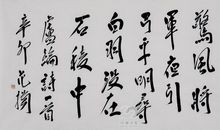 驚風將
軍夜引
弓平明尋
白羽沒在
石稜中
盧綸詩首
辛卯